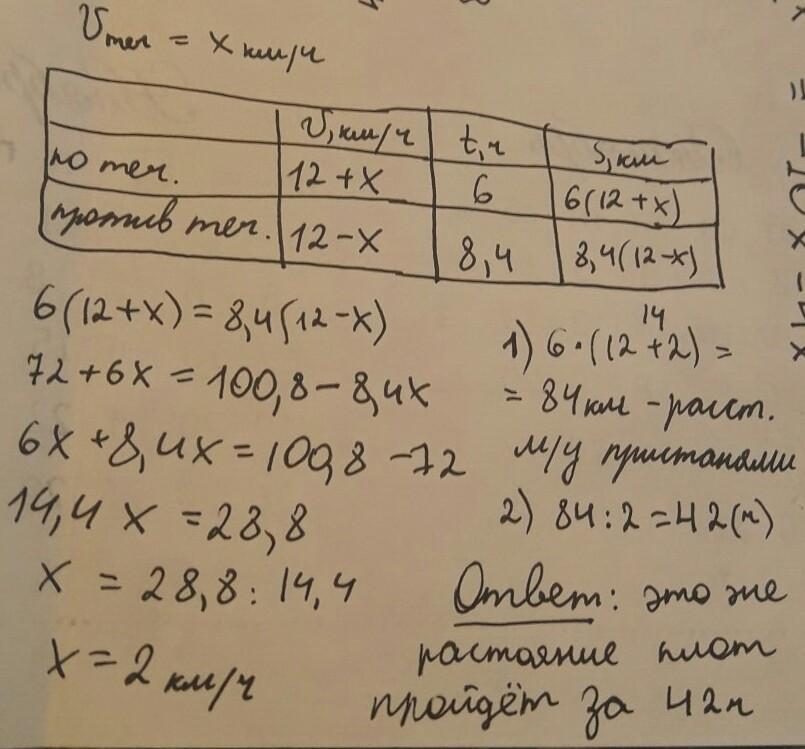 Vтеч = x км/ч
V, км/ч t, ч S, км
по теч. 12+x 6 6(12+x)
против теч. 12-x 8,4 8,4(12-x)
6(12+x)=8,4(12-x)
72+6x=100,8-8,4x
6x+8,4x=100,8-72
14,4x=28,8
x=28,8:14,4
x=2 км/ч
14
1) 6·(12+2)=
=84км -расст.
м/у пристанями
2) 84:2=42(ч)
Ответ: это же
растояние плот
пройдёт за 42ч